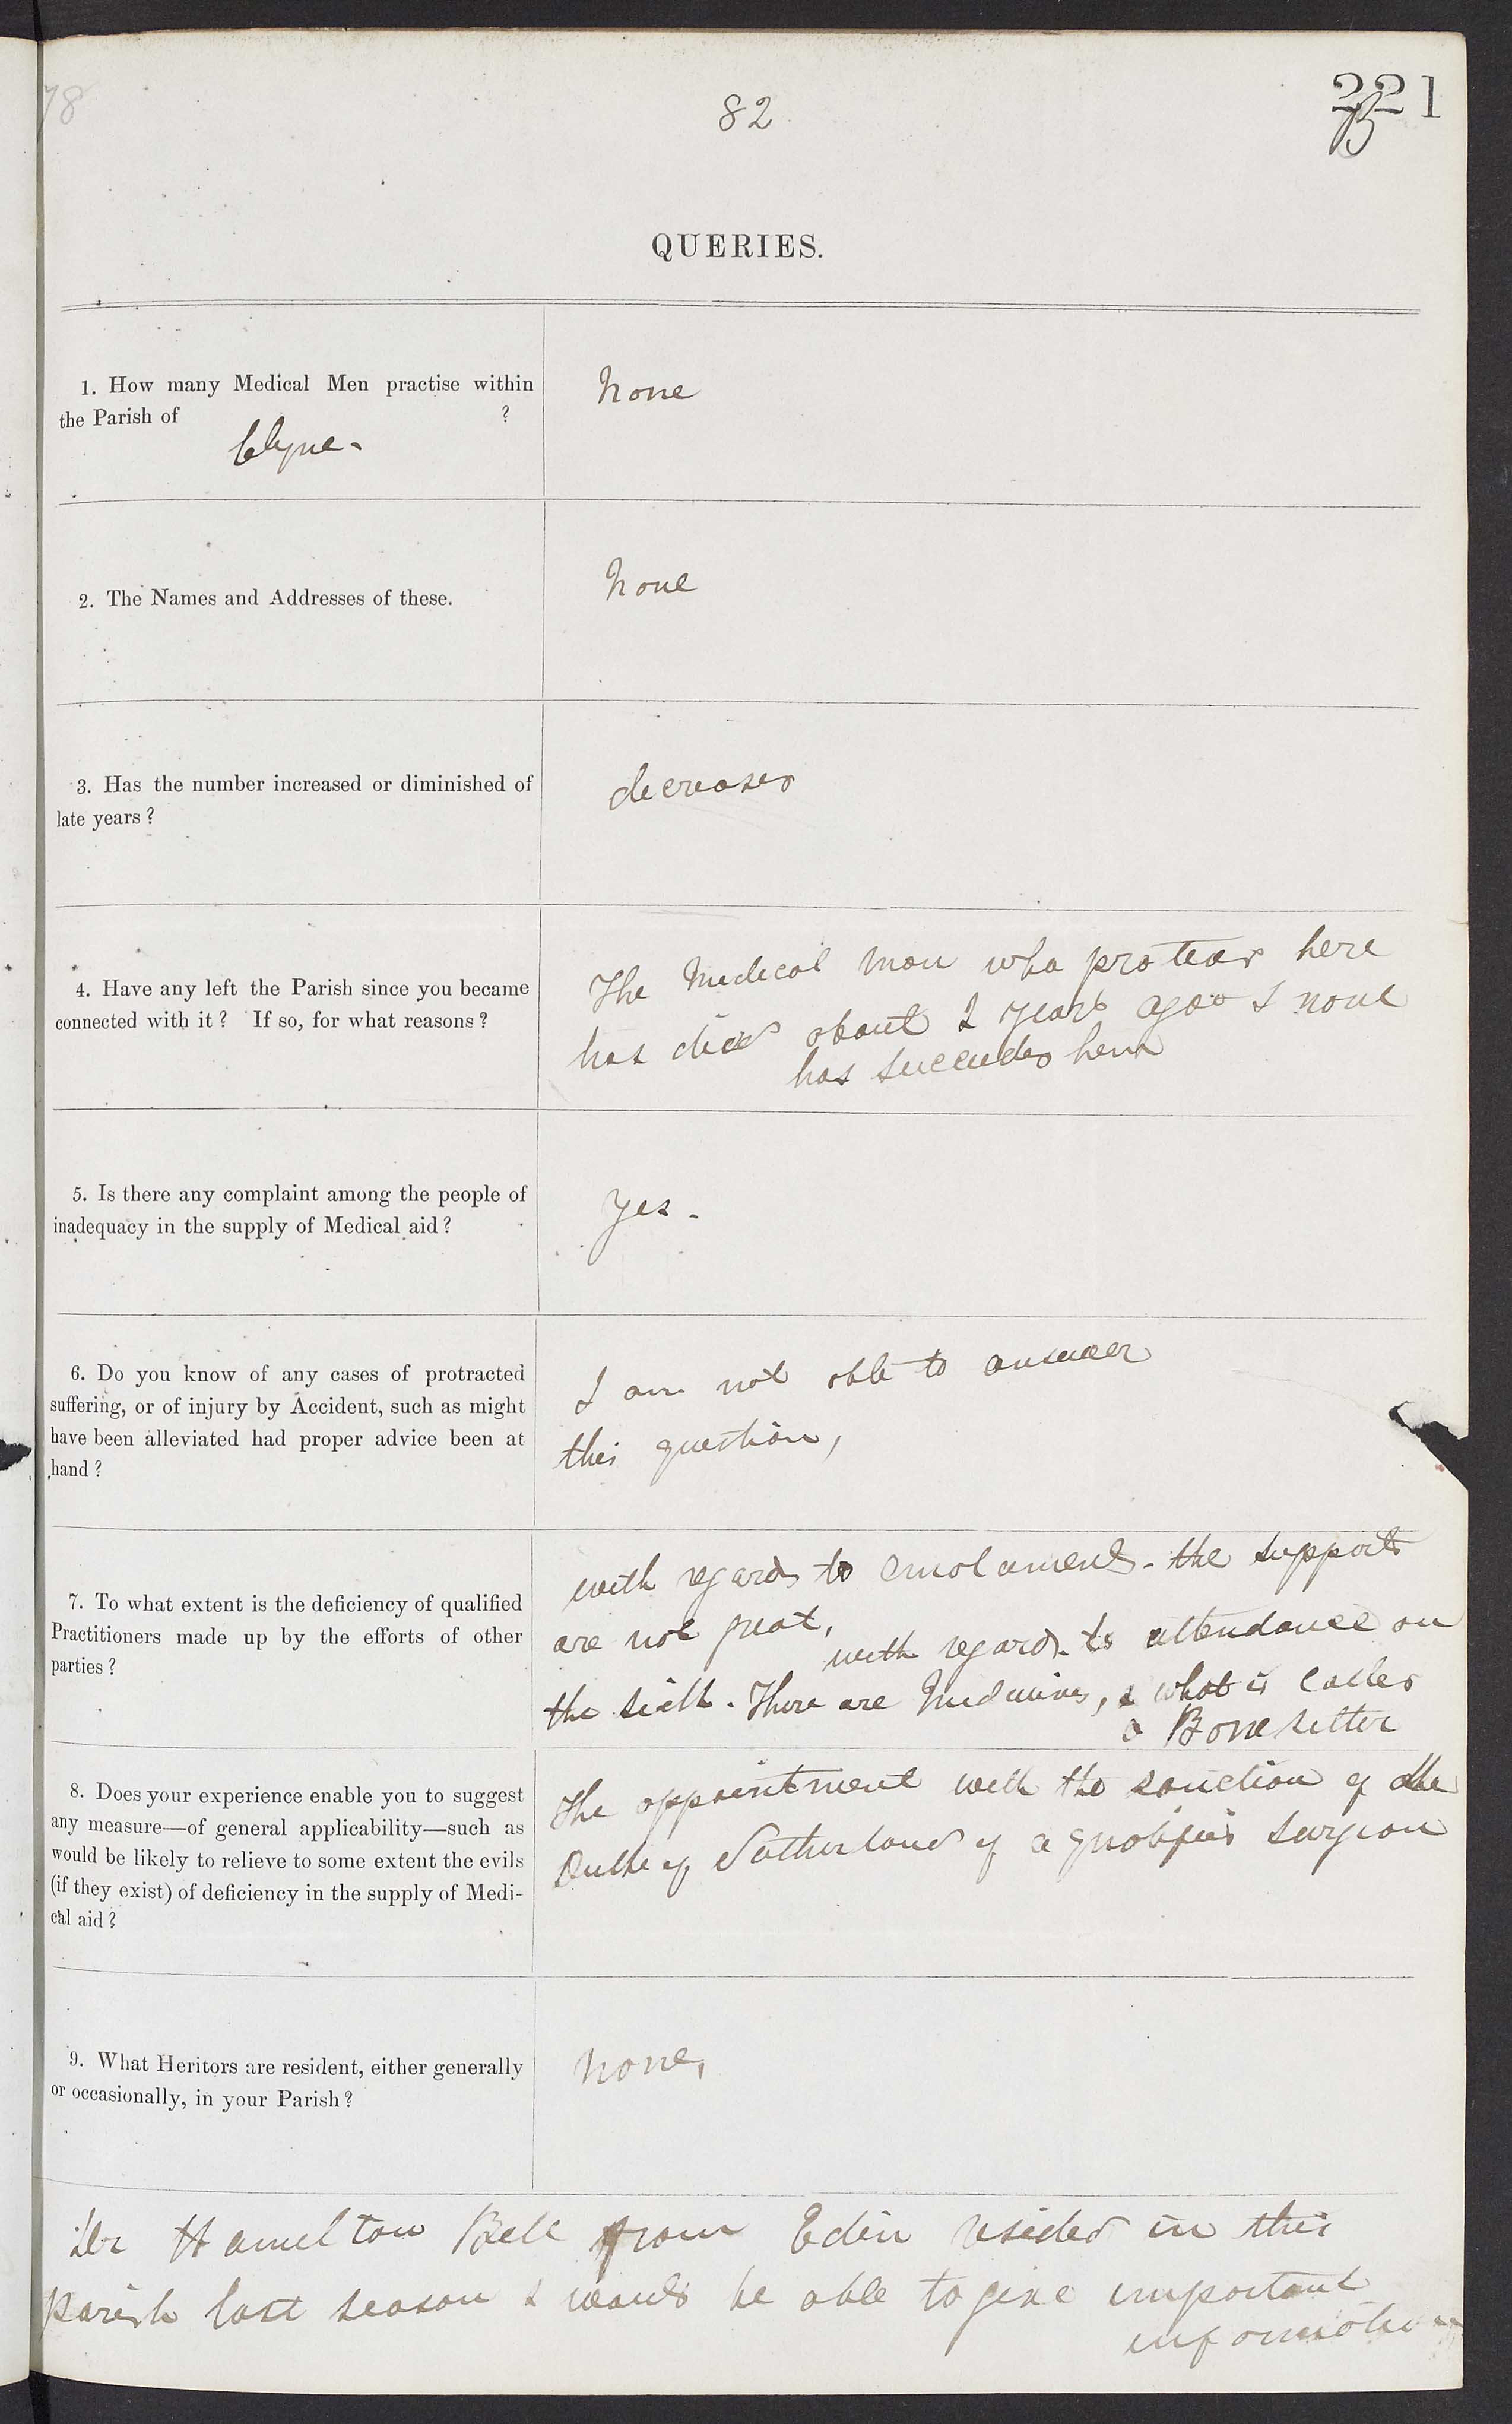 78
82
221
QUERIES.
1. How many Medical Men practise within
the Parish of ?
Clyne.
None
2. The Names and Addresses of these.
None
3. Has the number increased or diminished of
late years?
decreased
4. Have any left the Parish since you became
connected with it? If so, for what reasons?
The Medical man who practised here
has died about 2 years ago & none
has succeeded him
5. Is there any complaint among the people of
inadequacy in the supply of Medical aid?
Yes.
6. Do you know of any cases of protracted
suffering, or of injury by Accident, such as might
have been alleviated had proper advice been at
hand?
I am not able to answer
this question,
7. To what extent is the deficiency of qualified
Practitioners made up by the efforts of other
parties?
with regard to emolument - the support
are not great,
with regard to attendance on
the sick. There are Midwives, & what is called
a Bonesetter
8. Does your experience enable you to suggest
any measure—of general applicability—such as
would be likely to relieve to some extent the evils
(if they exist) of deficiency in the supply of Medi-
cal aid?
The appointment with the sanction of the
Duke of Sutherland of a qualified surgeon
9. What Heritors are resident, either generally
or occasionally, in your Parish?
None,
Dr Hamilton Bell from Edin resided in this
parish last season & would be able to give important
information